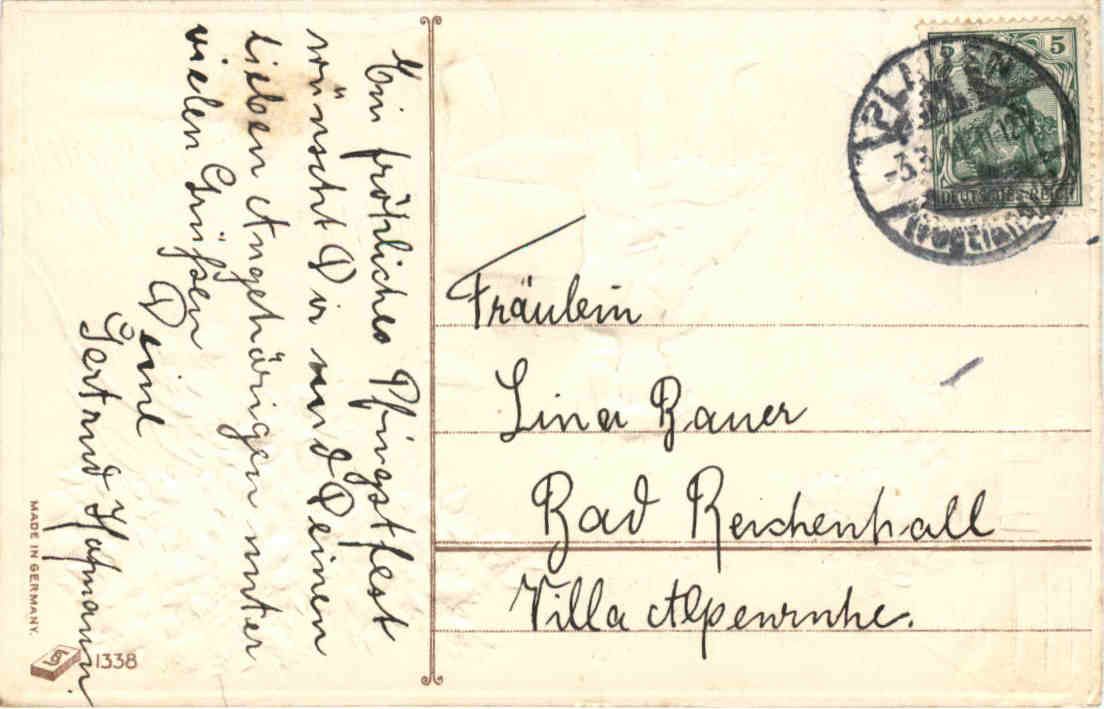 Ein fröhliches Pfingstfest
wünscht Dir und Deinen
lieben Angehörigen unter
vielen Grüßen
Deine
Gertrud Hofmann.
Fräulein
Lina Bauer
Bad Reichenhall
Villa Alpenruhe.
MADE IN GERMANY.
1338
5 5
PLAUEN
(Vogtland)
DEUTSCHES REICH